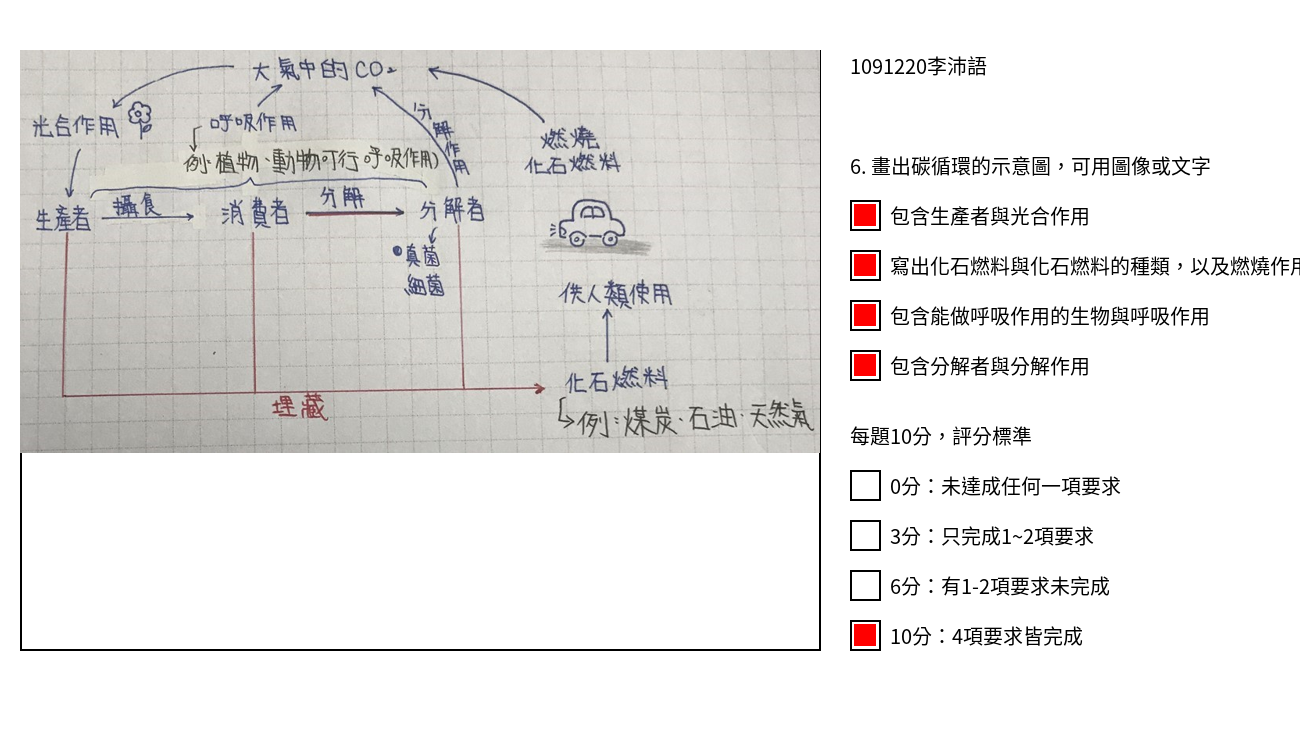 大氣中的CO₂
光合作用
呼吸作用
例:植物、動物可行呼吸作用)
分解作用
燃燒
化石燃料
生產者
攝食
消費者
分解
分解者
真菌
細菌
供人類使用
化石燃料
例:煤炭·石油·天然氣
埋藏
1091220李沛語
6. 畫出碳循環的示意圖，可用圖像或文字
包含生產者與光合作用
寫出化石燃料與化石燃料的種類，以及燃燒作用
包含能做呼吸作用的生物與呼吸作用
包含分解者與分解作用
每題10分，評分標準
0分：未達成任何一項要求
3分：只完成1~2項要求
6分：有1-2項要求未完成
10分：4項要求皆完成